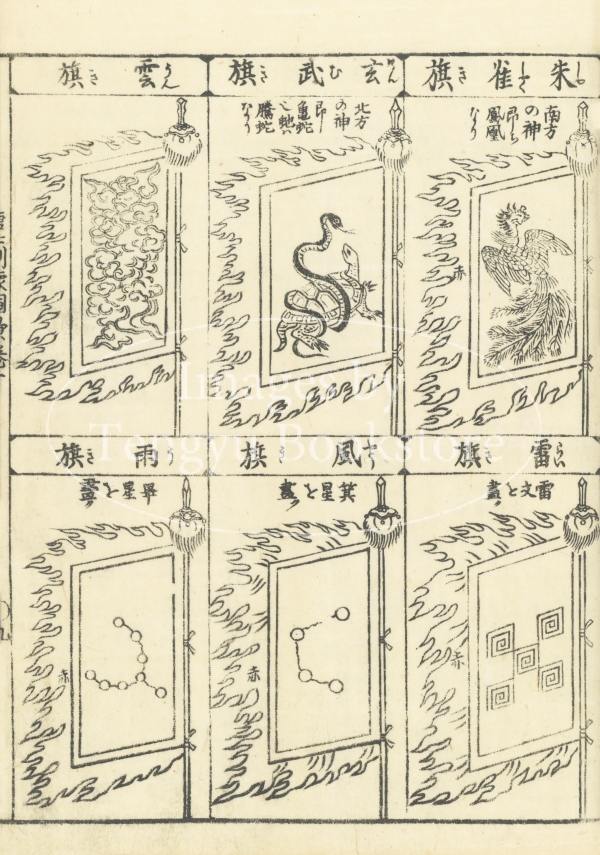 朱雀旗
南方
の神
即ち
鳳凰
なり
玄武旗
北方
の神
即
亀蛇
也虵ハ
騰蛇
なり
雲旗
雷旗
雷文を畫ク
赤
風旗
箕星を畫ク
赤
雨旗
畢星を畫ク
赤
Images by
Tengyu Bookstore